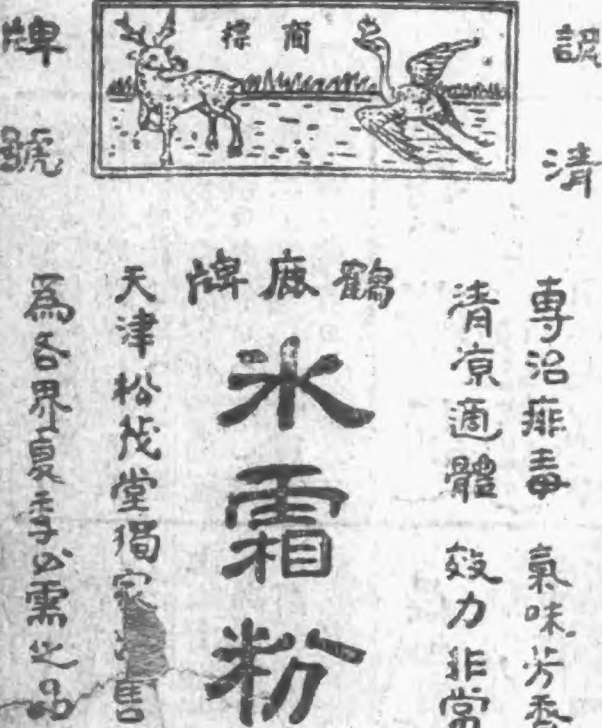 認清
牌號
商標
鶴鹿牌
氷霜粉
專治痱毒 氣味芳香
清涼適體 效力非常
天津松茂堂獨家 售
為各界夏季必需之品